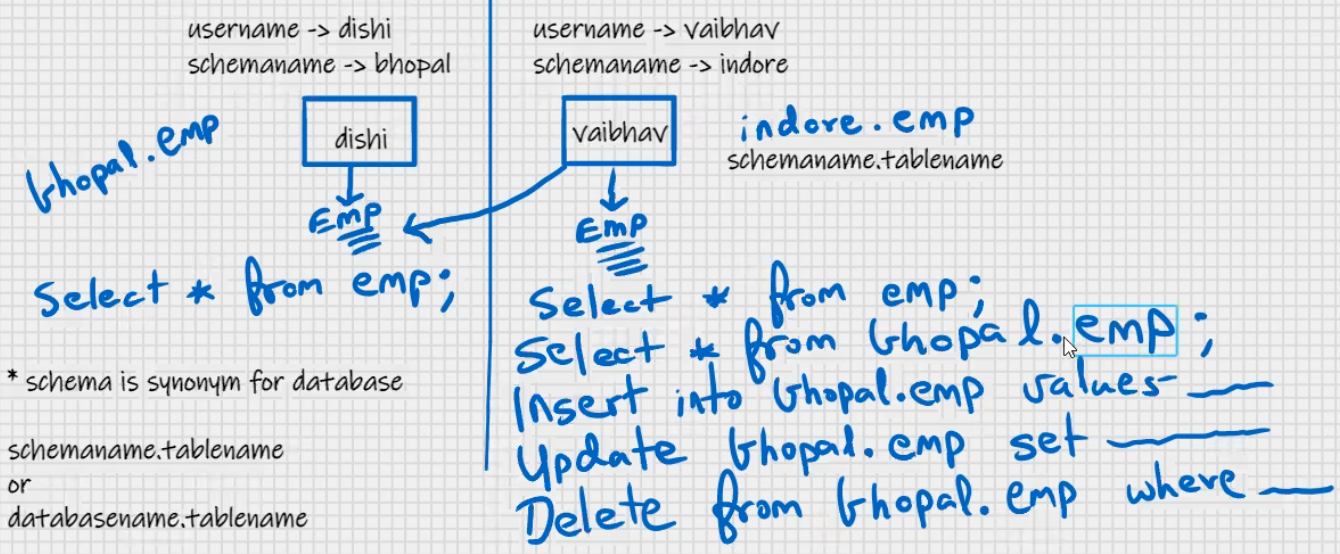 username -> dishi
schemaname -> bhopal
dishi
bhopal.emp
Emp
Select * from emp;
* schema is synonym for database
schemaname.tablename
or
databasename.tablename
username -> vaibhav
schemaname -> indore
vaibhav
indore.emp
schemaname.tablename
Emp
Select * from emp;
Select * from bhopal.emp;
Insert into bhopal.emp values
Update bhopal.emp set
Delete from bhopal.emp where